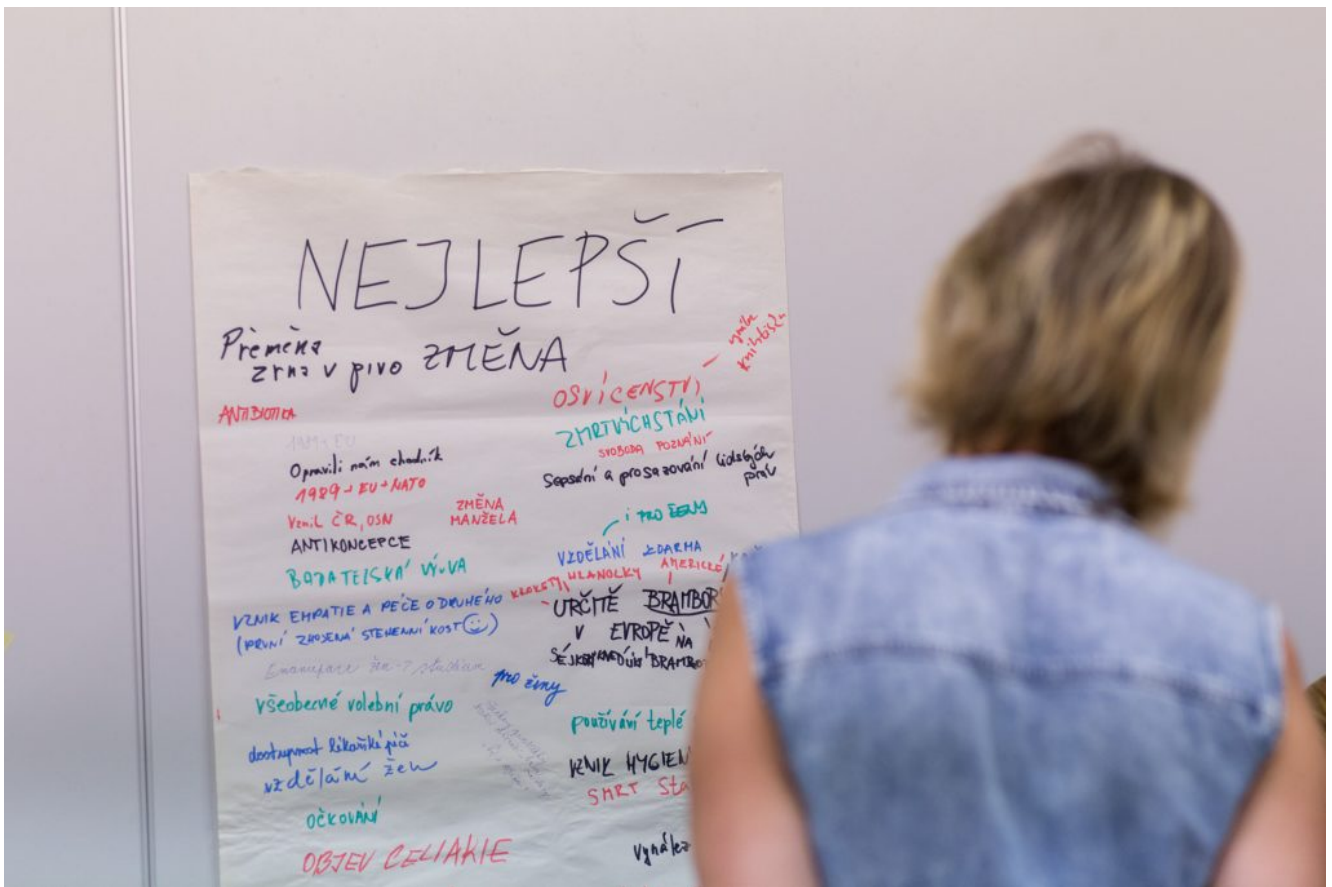 NEJLEPŠÍ
Přeměna
zrna v pivo ZMĚNA
ANTIBIOTIKA
Opravili nám chodník
1989 → EU + NATO
Vznik ČR, OSN
ZMĚNA
MANŽELA
ANTIKONCEPCE
BADATELSKÁ VÝUKA
VZNIK EMPATIE A PÉČE O DRUHÉHO
(PRVNÍ ZHOJENÁ STEHENNÍ KOST ☺)
Emancipace žen → studium
pro ženy
všeobecné volební právo
dostupnost lékařské péče
vzdělání žen
OČKOVÁNÍ
OBJEV CELIAKIE
knihtisku
OSVÍCENSTVÍ
ZMRTVÝCHSTÁNÍ
SVOBODA POZNÁNÍ
Sepsání a prosazování lidských
práv
i PRO ŽENY
VZDĚLÁNÍ ZDARMA
KROKETY, HRANOLKY AMERICKÉ
URČITĚ BRAMBOR
V EVROPĚ
NA
používání teplé
VZNIK HYGIEN
SMRT Sta
vynález